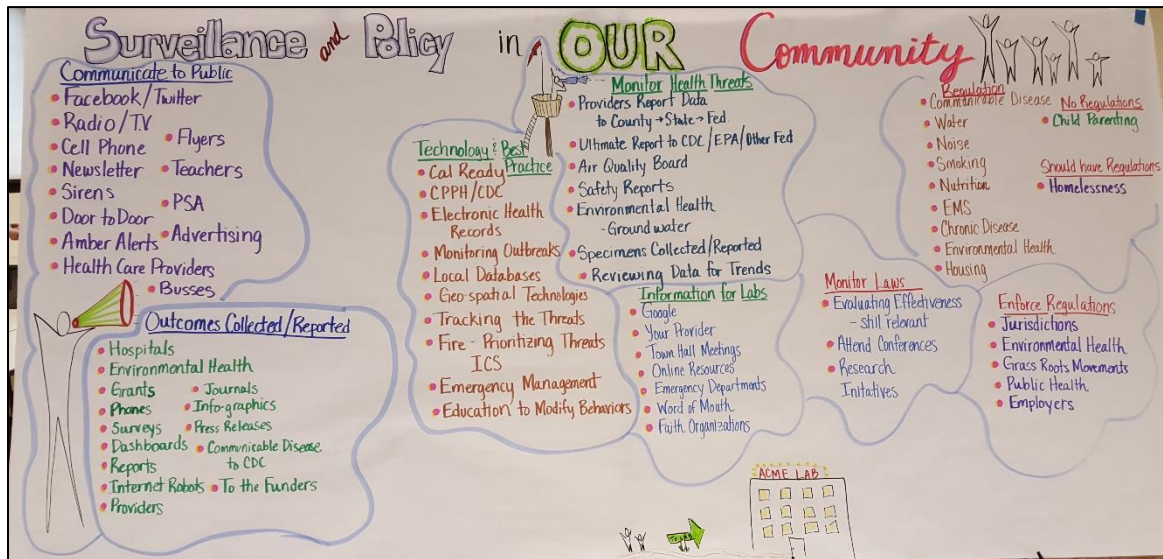 Surveillance and Policy in OUR Community
Communicate to Public
Facebook/Twitter
Radio/TV
Cell Phone
Newsletter
Sirens
Door to Door
Amber Alerts
Health Care Providers
Busses
Flyers
Teachers
PSA
Advertising
Outcomes Collected/Reported
Hospitals
Environmental Health
Grants
Phones
Surveys
Dashboards
Reports
Internet Robots
Providers
Journals
Info-graphics
Press Releases
Communicable Disease
to CDC
To the Funders
Technology & Best
Practice
Cal Ready
CPPH/CDC
Electronic Health
Records
Monitoring Outbreaks
Local Databases
Geo-spatial Technologies
Tracking the Threats
Fire - Prioritizing Threats
ICS
Emergency Management
Education to Modify Behaviors
Monitor Health Threats
Providers Report Data
to County → State → Fed.
Ultimate Report to CDC/EPA/Other Fed
Air Quality Board
Safety Reports
Environmental Health
- Ground water
Specimens Collected/Reported
Reviewing Data for Trends
Information for Labs
Google
Your Provider
Town Hall Meetings
Online Resources
Emergency Departments
Word of Mouth
Faith Organizations
Regulation
Communicable Disease
Water
Noise
Smoking
Nutrition
EMS
Chronic Disease
Environmental Health
Housing
No Regulations
Child Parenting
Should have Regulations
Homelessness
Monitor Laws
Evaluating Effectiveness
- still relevant
Attend Conferences
Research
Initatives
Enforce Regulations
Jurisdictions
Environmental Health
Grass Roots Movements
Public Health
Employers
ACME LAB